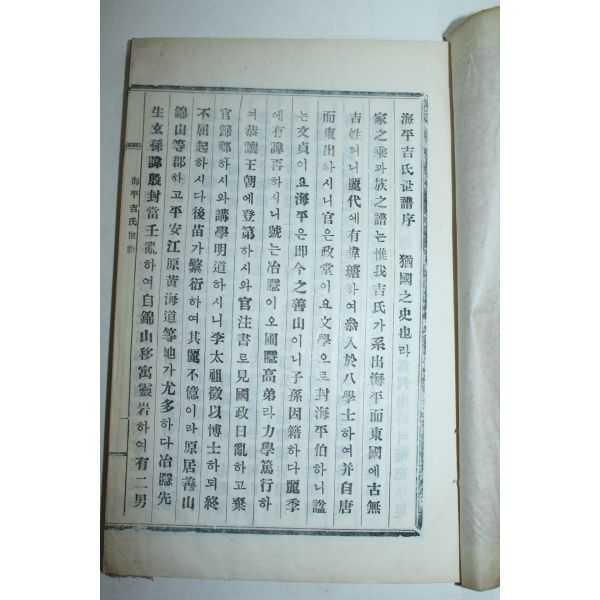 海平吉氏世譜序
猶國之史也라
家之乘과族之譜는惟我吉氏가系出海平而東國에古無
吉姓터니麗代에有諱瑭하여叅入於八學士하여并自唐
而東出하시니官은政堂이요文學으로封海平伯하니謚
는文貞이요海平은即今之善山이니子孫因籍하다麗季
에有諱再하시니號는冶隱이오圃隱高弟라力學篤行하
여恭讓王朝에登第하시와官注書로見國政日亂하고棄
官歸鄕하시와講學明道하시니李太祖徵以博士하되終
不屈起하시다後苗가繁衍하여其麗不億이라原居善山
錦山等郡하고平安江原黃海道等地가尤多하다冶隱先
生玄孫諱殷封當壬亂하여自錦山移寓靈岩하여有二男
海平吉氏世譜